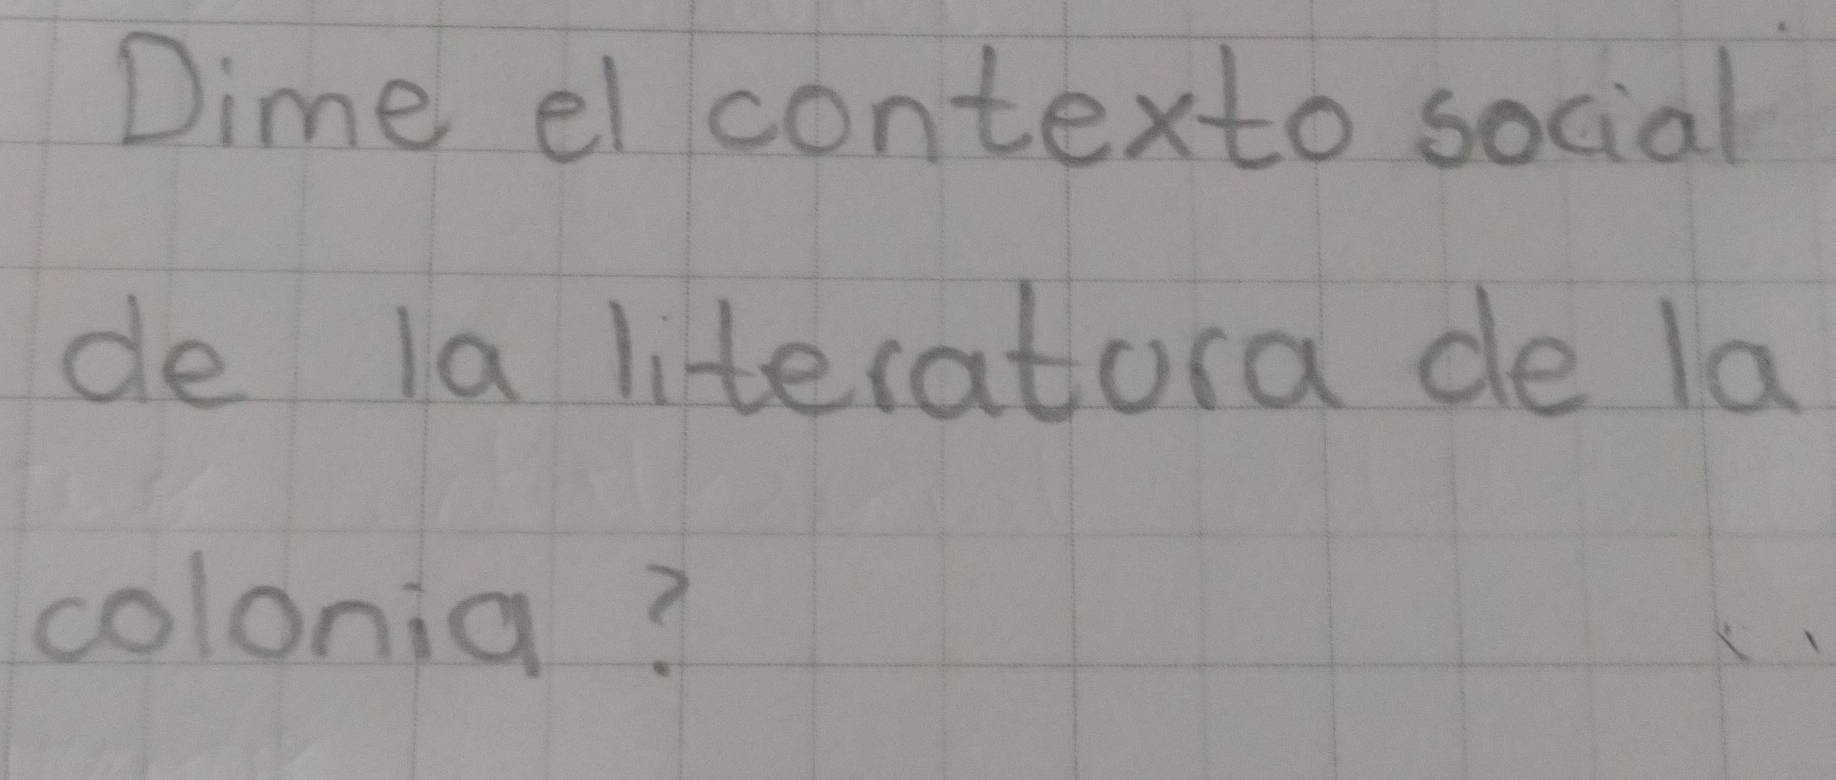 Dime el contexto social
de la literatura de la
colonia?